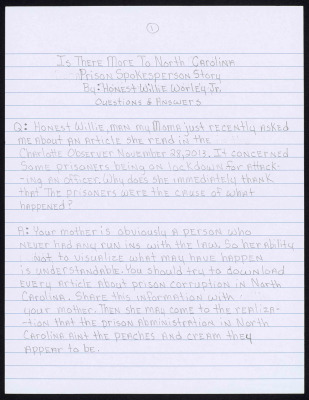 1
Is There More To North Carolina
Prison Spokesperson Story
By: Honest Willie Worley Jr.
Questions & Answers
Q: Honest Willie, man my Moma just recently asked
me about an article she read in the
Charlotte Observer November 28, 2013. It concerned
Some prisoners being on lockdown for attack-
-ing an officer. Why does she immediately thank
that The prisoners were the cause of what
happened?
A: Your mother is obviously a person who
never had any run ins with the law. So her ability
not to visualize what may have happen
is understandable. You should try to download
every article about prison corruption in North
Carolina. Share this information with
your mother. Then she may come to the realiza-
-tion that the prison administration in North
Carolina aint the peaches and cream they
appear to be.